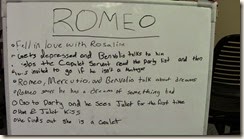 ROMEO
• Fall in love with Rosaline
• Gets depressed and Benvolio talks to him
• Helps the Caplet Servent read the Party list and then
was invited to go if he isn't a Montague
• Romeo, Mercutio, and Benvolio talk about dreams
• Romeo says he has a dream of something bad
• Go to Party and he sees Jaliet for the first time
• He & Juliet Kiss
• He finds out she is a Caplet